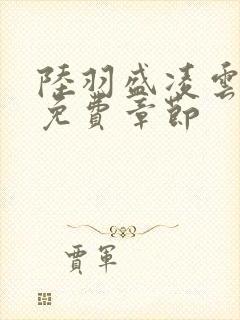 陸羽盛凌雲
免費章節
賈軍